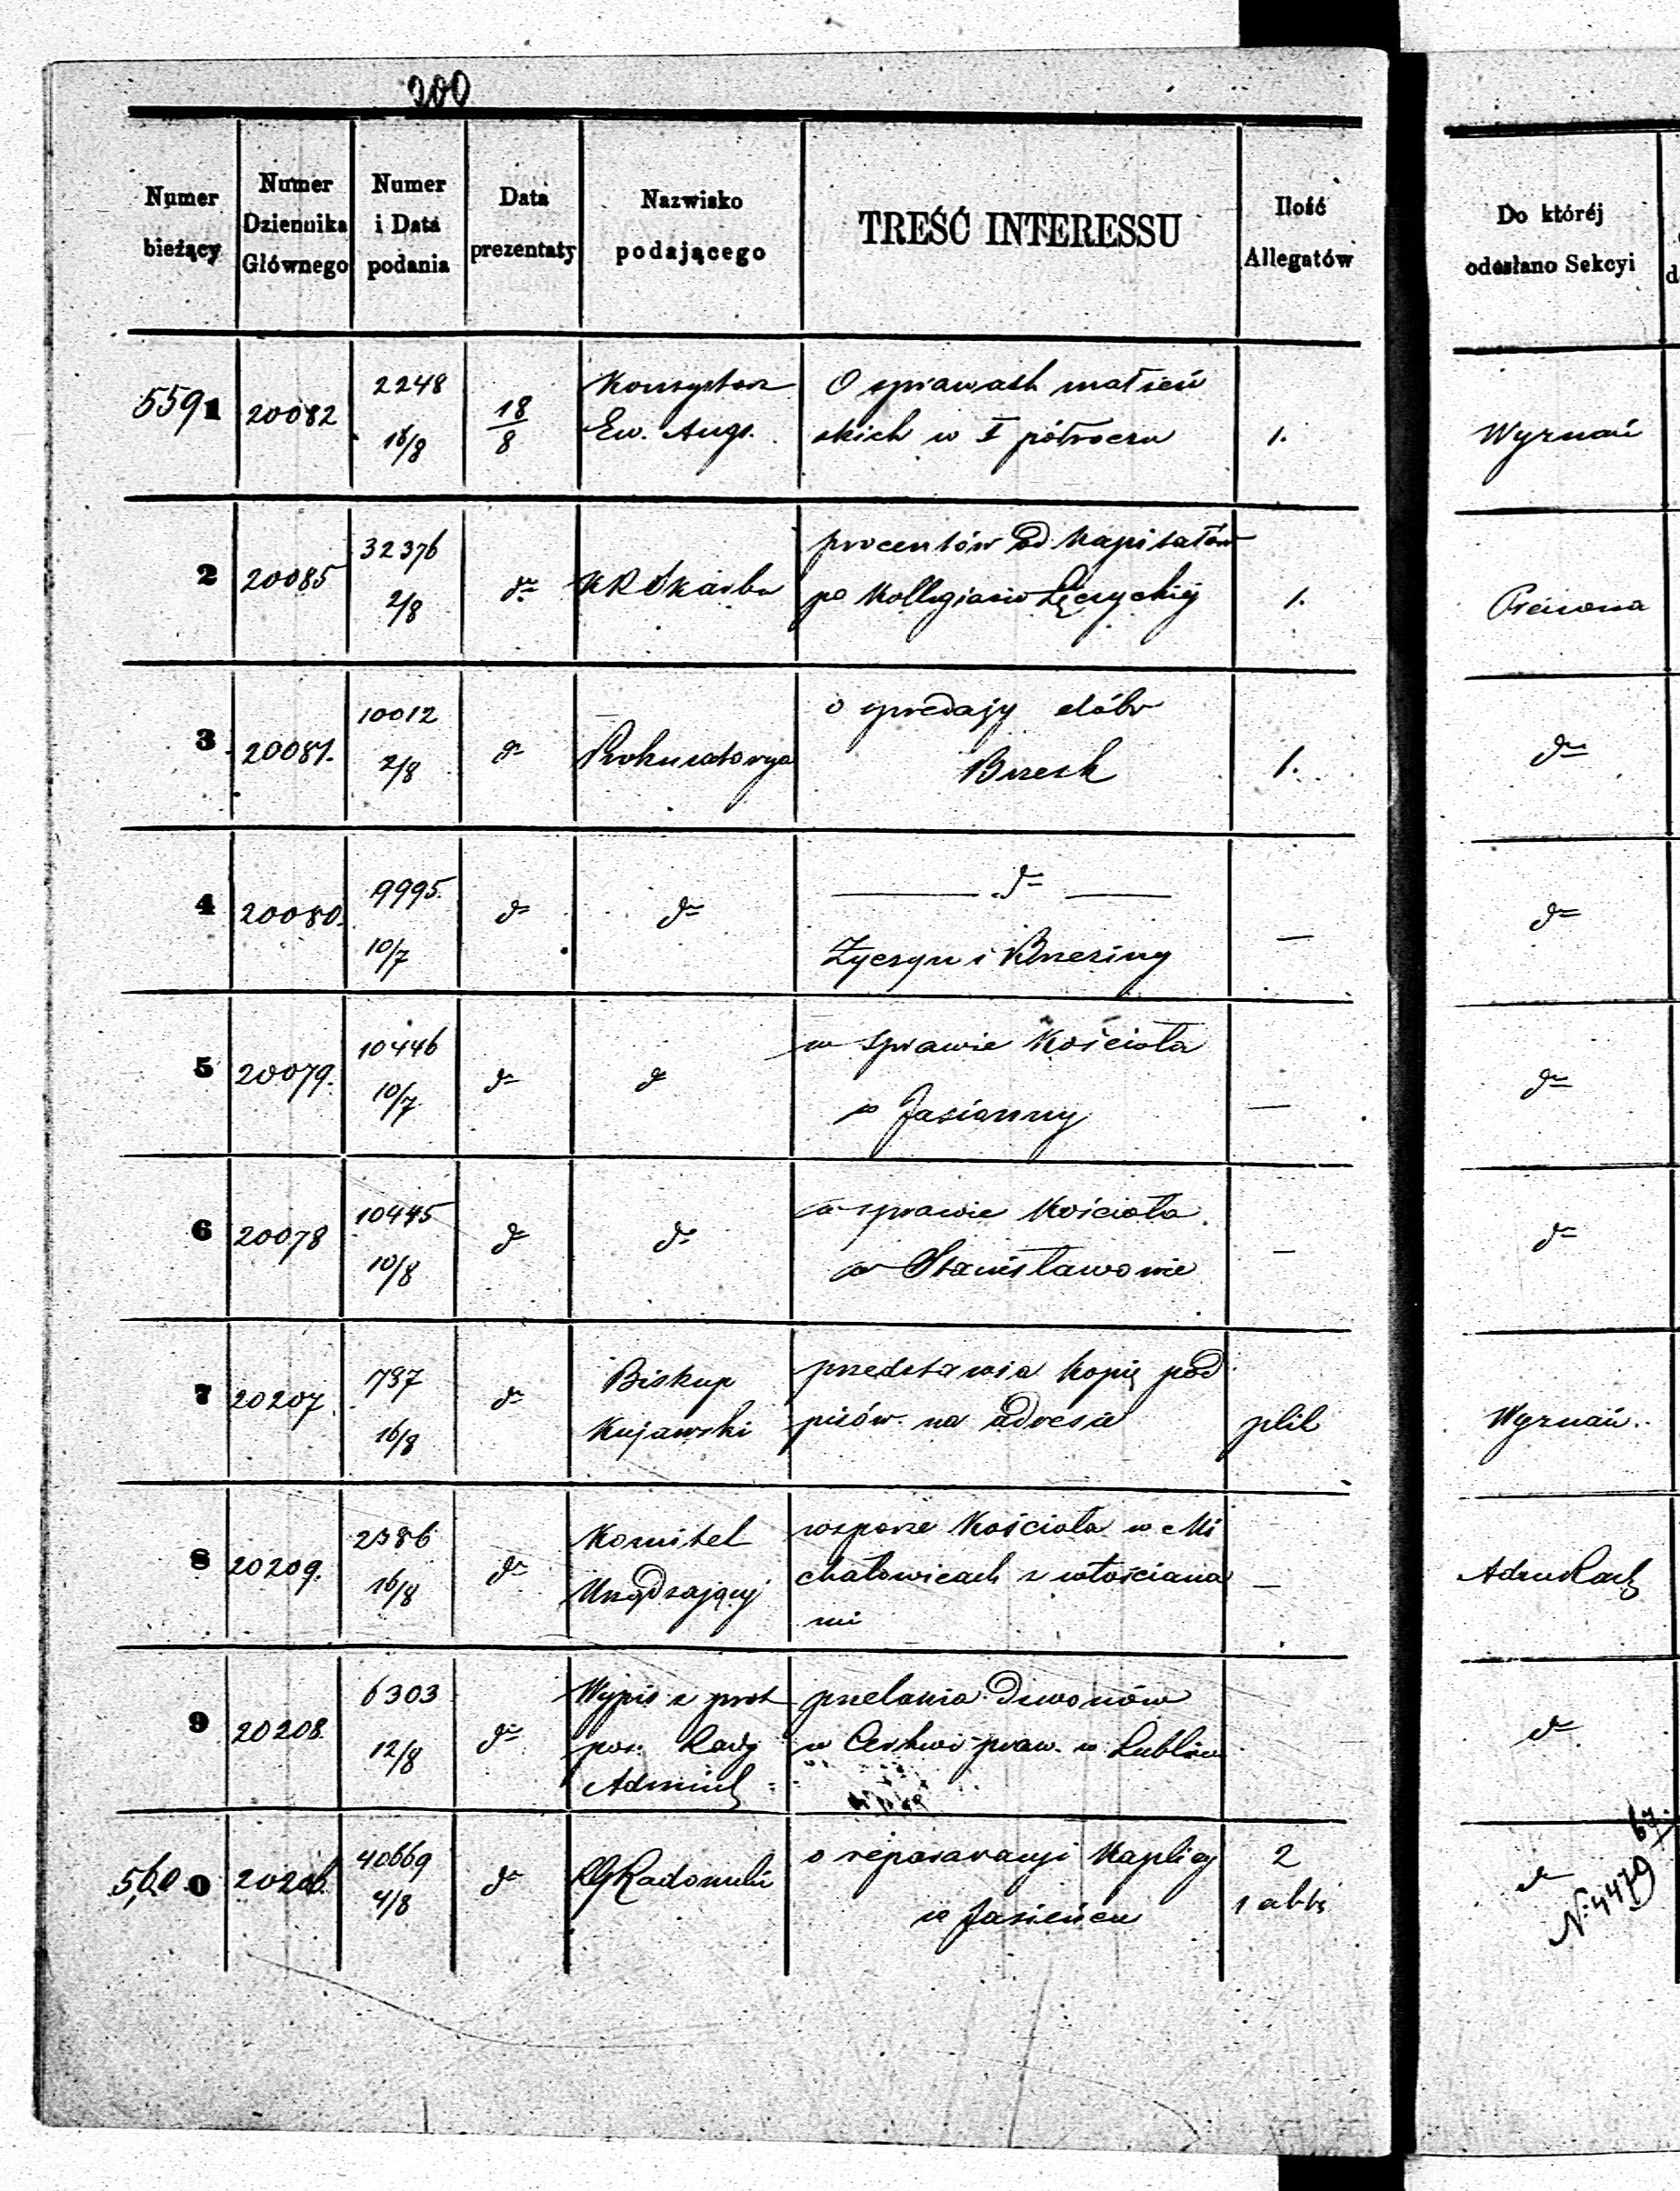 200
Numer bieżący
Numer Dziennika Głównego
Numer i Data podania
Data prezentaty
Nazwisko podającego
TREŚĆ INTERESSU
Ilość Allegatów
Do któréj odesłano Sekcyi
5591 20082 2248 16/8 18/8 Konsystorz Ew. Augs. O sprawach małżeń
skich w I półroczu 1. Wyznań
2 20085 32376 2/8 dto procentów od Kapitałów
po Kollegiacie Łęczyckiej 1.
3 20081. 10012 2/8 dto Prokuratorya o sprzedaży dóbr
Brzesk 1. dto
4 20080. 9995. 10/7 dto dto — dto —
Życzyn i Brzeziny — dto
5 20079. 10446 10/7 dto dto w sprawie Kościoła
w Jasionny — dto
6 20078 10445 10/8 dto dto w sprawie Kościoła
w Stanisławowie — dto
7 20207 737 16/8 dto Biskup
Kujawski przedstawia kopię pod
pisów na adresie plik Wyznań.
8 20209. 2386 16/8 dto Komitet
Urządzający w sporze Kościoła w Mi
chałowicach z włościana
mi —
9 20208. 6303 12/8 dto Wypis z prot
pos. Rady
Administ przelania dzwonów
w Cerkwi praw. w Lublinie dto
5600 20206. 40669 4/8 dto RG Radomski o reparacyi Kaplicy
w Jasieńcu 2
dto
No 4479
67.